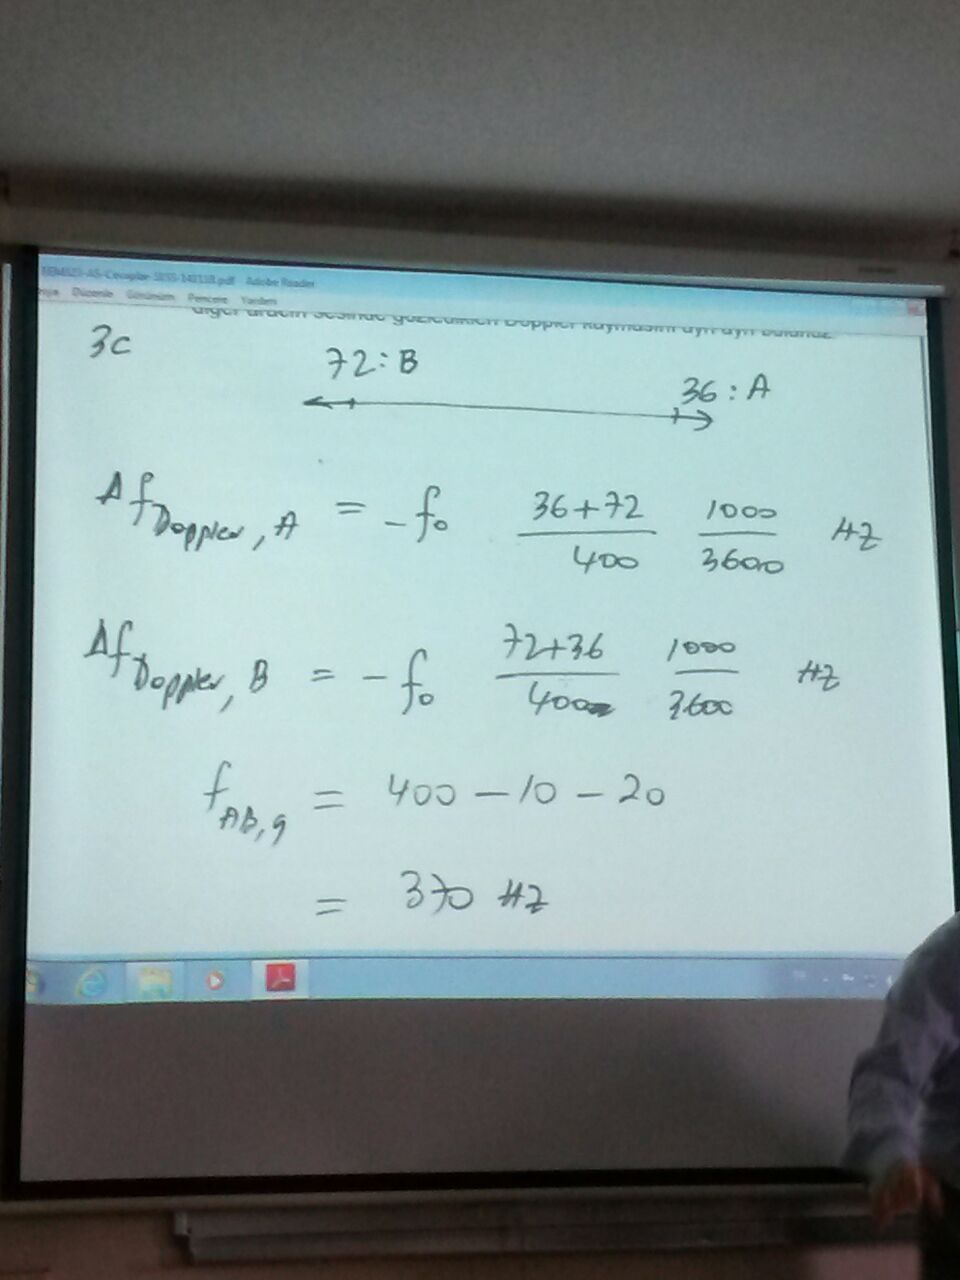 Adobe Reader
Düzenle Görünüm Pencere Yardım
diğer aracın sesinde gözledikleri Doppler kaymasını ayrı ayrı bulunuz.
3c
72 : B
36 : A
Δf Doppler, A = -f₀ (36+72)/400 1000/3600 Hz
Δf Doppler, B = -f₀ (72+36)/400 1000/3600 Hz
f AB, g = 400 - 10 - 20
= 370 Hz